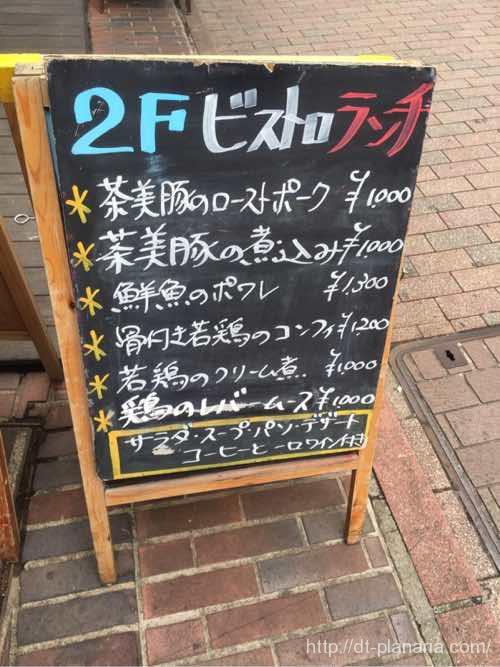 2F ビストロ ランチ
茶美豚のローストポーク ¥1,000
茶美豚の煮込み ¥1,000
鮮魚のポワレ ¥1,300
骨付き若鶏のコンフィ ¥1,200
若鶏のクリーム煮. ¥1,000
鶏のレバームース ¥1,000
サラダ・スープ・パン・デザート
コーヒーと一口ワイン付き
http://dt-planaria.com/